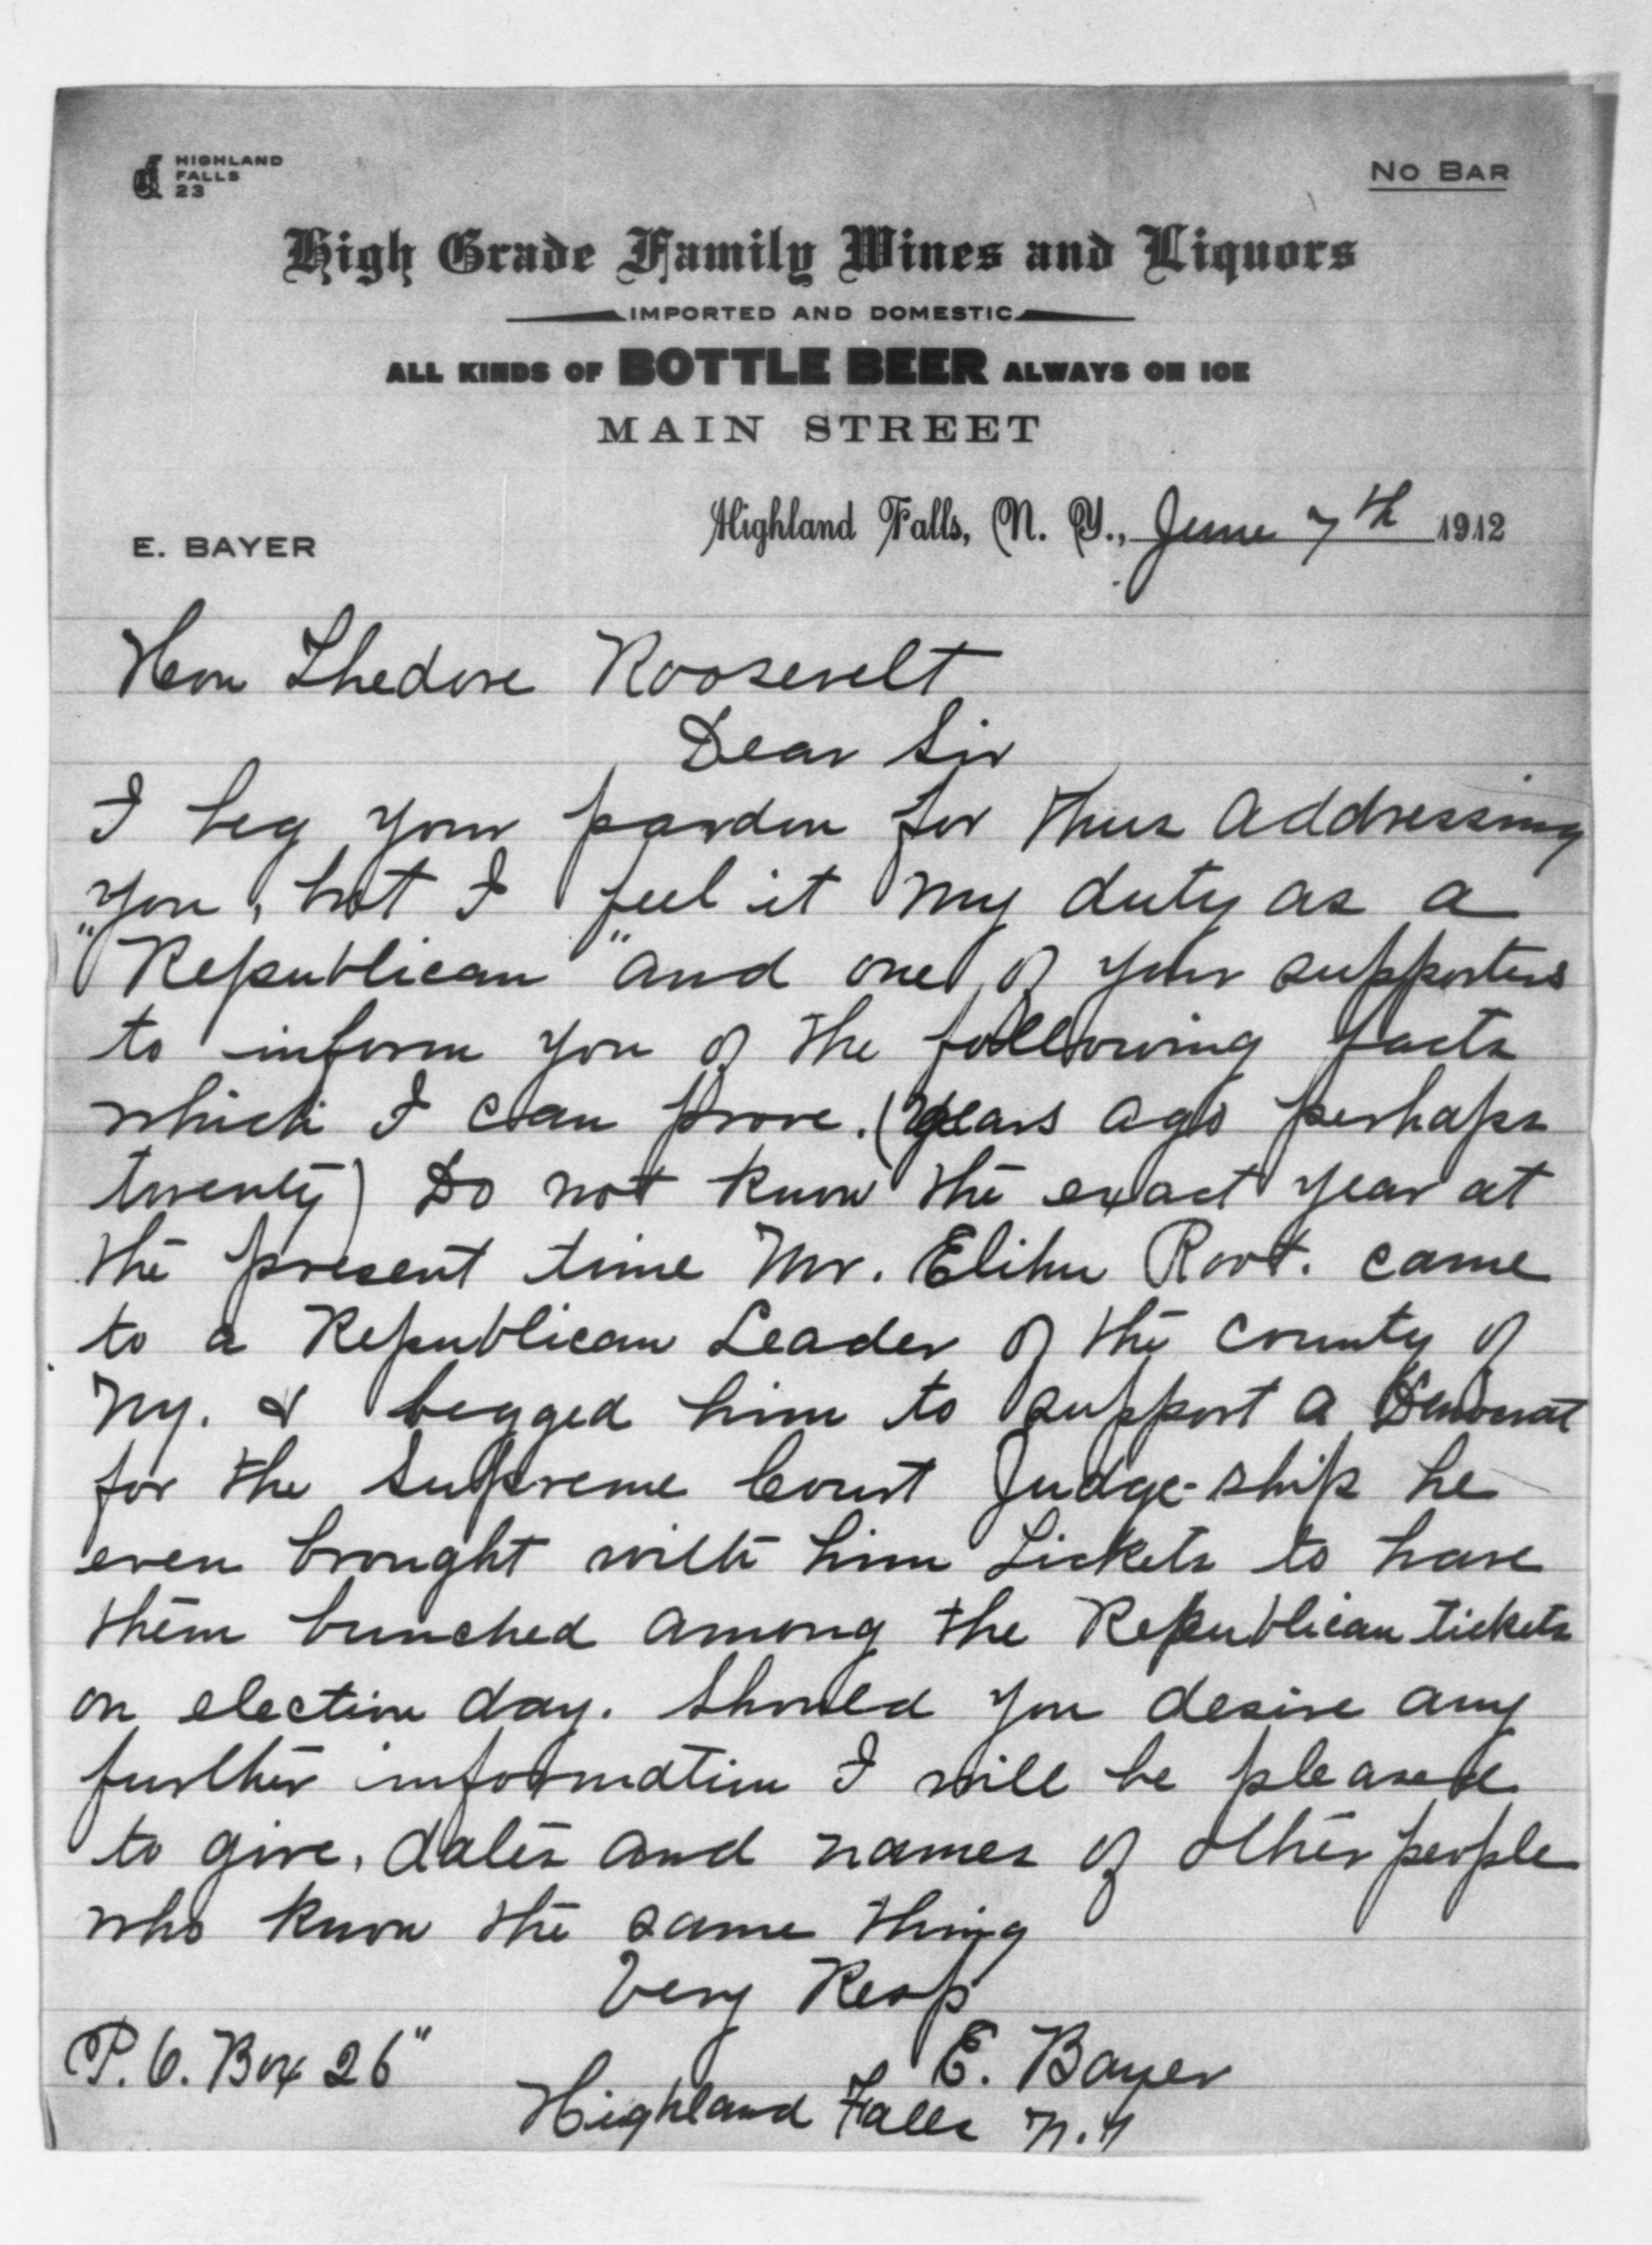 HIGHLAND
FALLS
23
No Bar
High Grade Family Wines and Liquors
IMPORTED AND DOMESTIC
ALL KINDS OF BOTTLE BEER ALWAYS ON ICE
MAIN STREET
E. BAYER
Highland Falls, N. Y., June 7th 1912
Hon Thedore Roosevelt
Dear Sir
I beg your pardon for thus addressing
you, but I feel it my duty as a
"Republican" and one of your supporters
to inform you of the following facts
which I can prove. (Years ago perhaps
twenty) Do not know the exact year at
the present time Mr. Elihu Root. came
to a Republican Leader of the county of
Ny. & begged him to support a Democrat
for the Supreme Court Judge-ship he
even brought with him tickets to have
them bunched among the Republican tickets
on election day. Should you desire any
further information I will be pleased
to give, dates and names of other people
who know the same thing
Very Resp
E. Bayer
P.O. Box 26"
Highland Falls N.Y